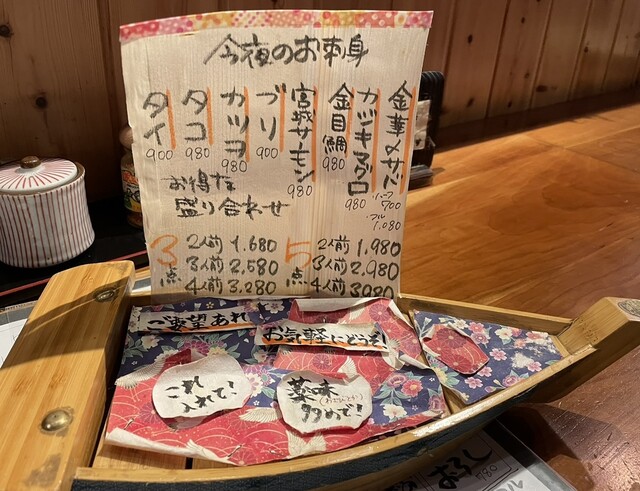 今夜のお刺身
金華〆サバ ハーフ700 フル1,080
カジキマグロ 980
金目鯛 980
宮城サーモン 980
ブリ 900
カツヲ 980
タコ 980
タイ 900
お得な
盛り合わせ
3点
2人前 1,680
3人前 2,580
4人前 3,280
5点
2人前 1,980
3人前 2,980
4人前 3980
ご要望あれば
お気軽にどうぞ!
これ
入れて!
薬味
多めで!
おろし